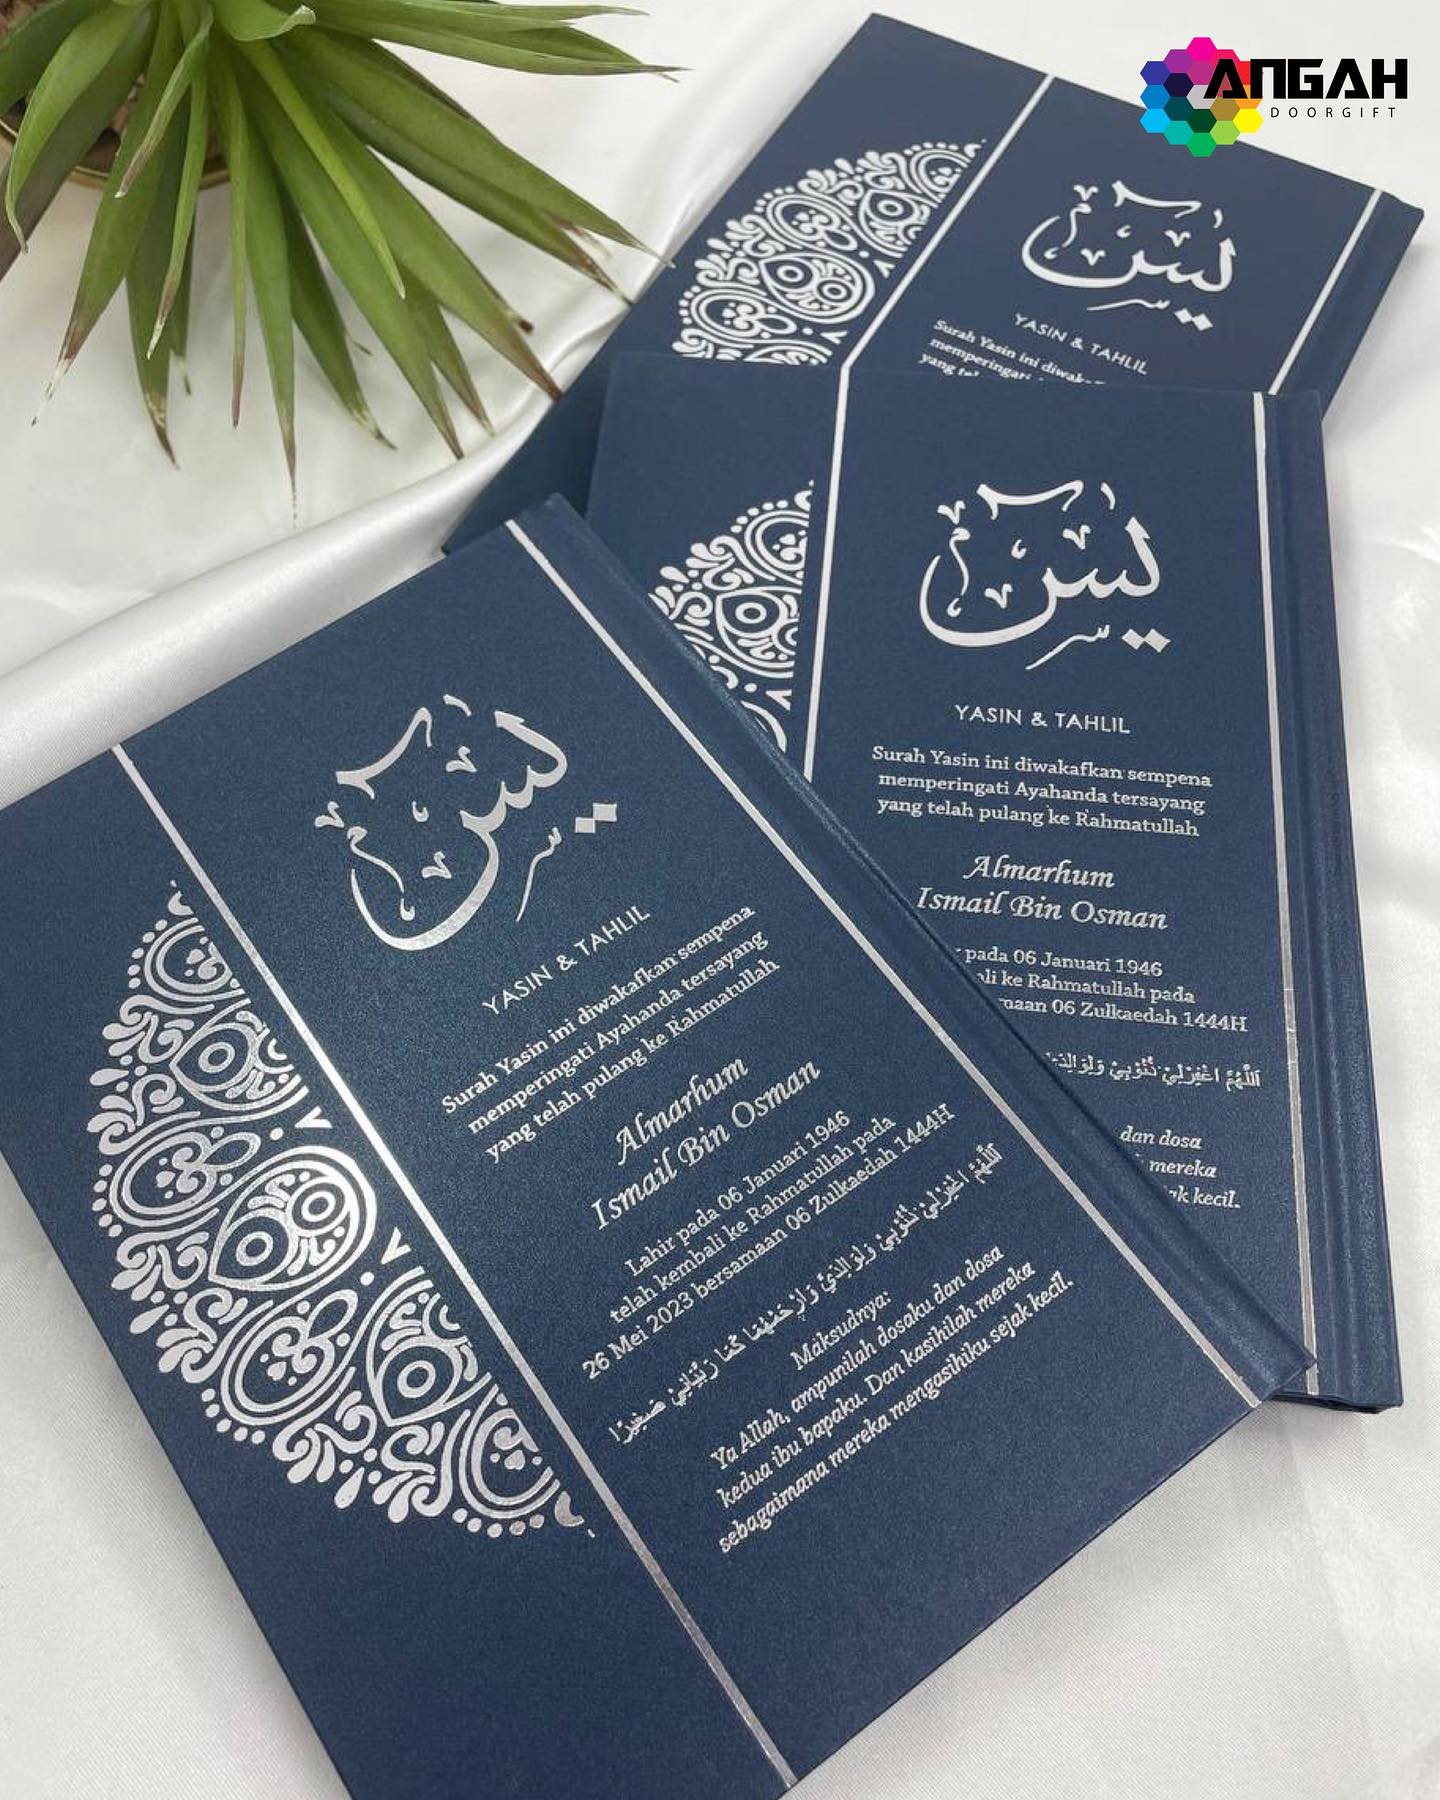 ANGAH
DOORGIFT
يس
YASIN & TAHLIL
Surah Yasin ini diwakafkan
memperingati
yang
يس
YASIN & TAHLIL
Surah Yasin ini diwakafkan sempena
memperingati Ayahanda tersayang
yang telah pulang ke Rahmatullah
Almarhum
Ismail Bin Osman
pada 06 Januari 1946
ke Rahmatullah pada
06 Zulkaedah 1444H
اَللّٰهُمَّ اغْفِرْلِيْ ذُنُوْبِيْ
dan dosa
mereka
kecil.
يس
YASIN & TAHLIL
Surah Yasin ini diwakafkan sempena
memperingati Ayahanda tersayang
yang telah pulang ke Rahmatullah
Almarhum
Ismail Bin Osman
Lahir pada 06 Januari 1946
telah kembali ke Rahmatullah pada
26 Mei 2023 bersamaan 06 Zulkaedah 1444H
اَللّٰهُمَّ اغْفِرْلِيْ ذُنُوْبِيْ وَلِوَالِدَيَّ وَارْحَمْهُمَا كَمَا رَبَّيَانِيْ صَغِيْرًا
Maksudnya:
Ya Allah, ampunilah dosaku dan dosa
kedua ibu bapaku. Dan kasihilah mereka
sebagaimana mereka mengasihiku sejak kecil.